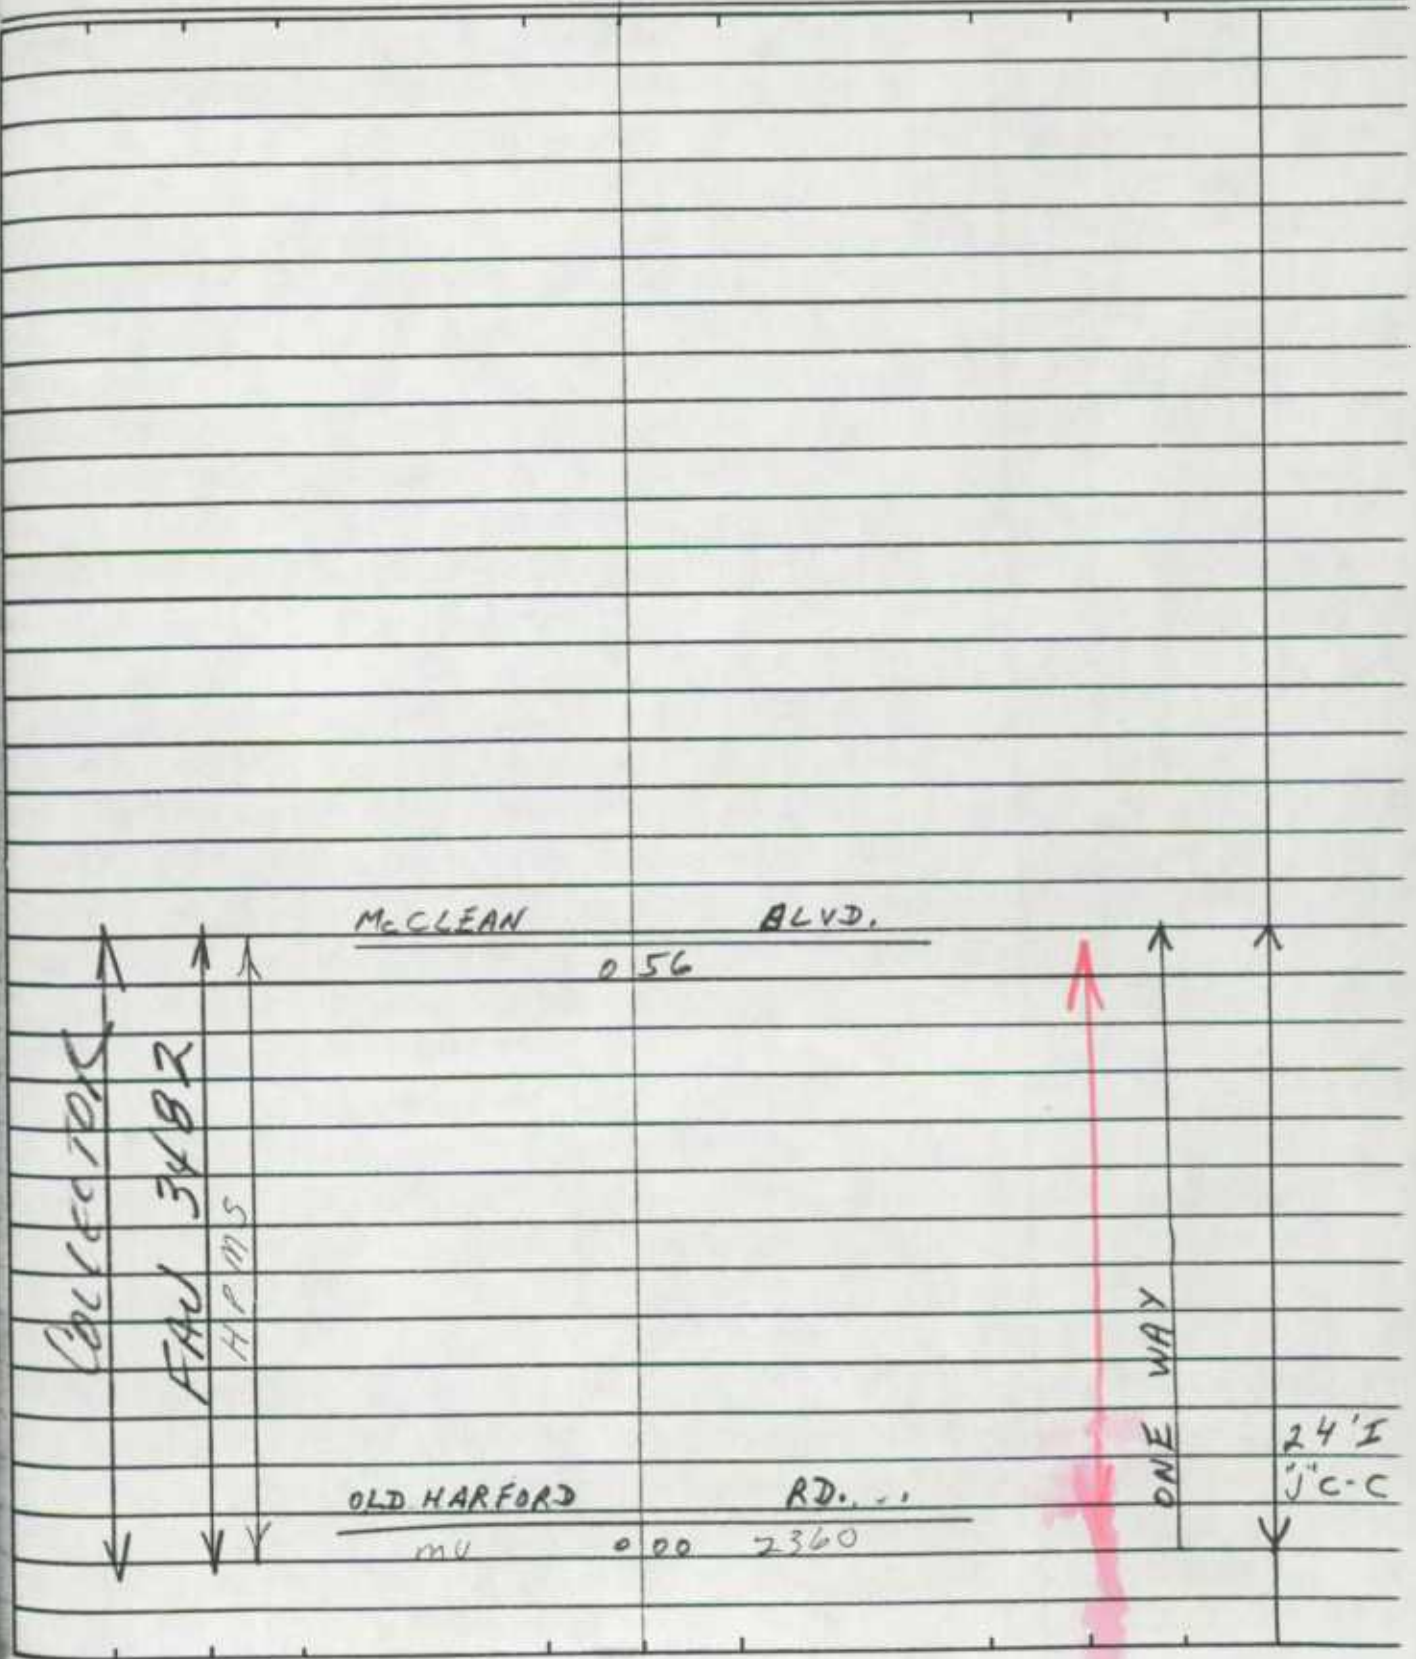 McCLEAN BLVD.
0 56
COLLECTOR
FAU 3482
HPMS
ONE WAY
24' I
"J" C-C
OLD HARFORD RD...
MU 0 00 2360